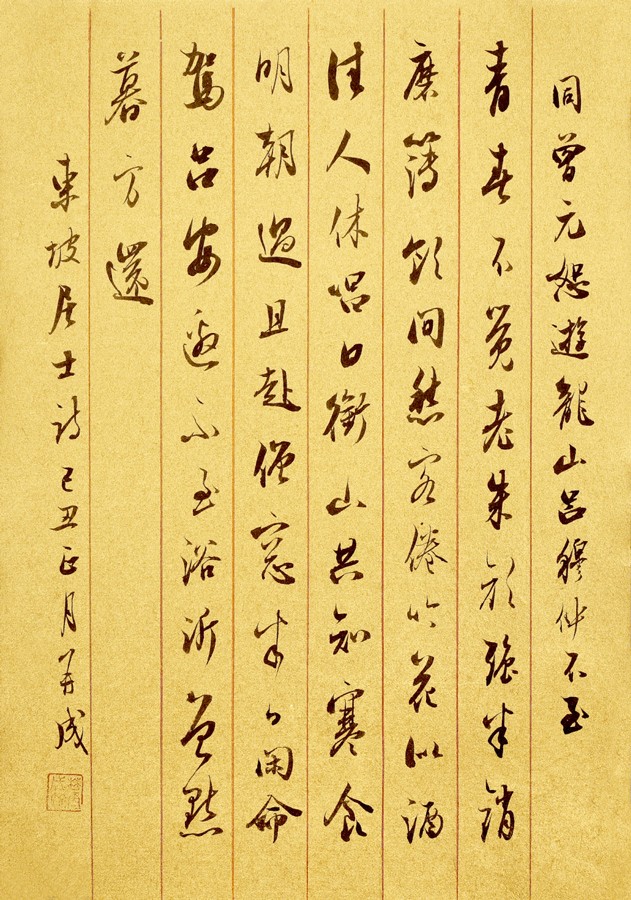 同曾元恕遊龍山呂穆仲不至
青春不覺老朱顏強半銷
磨簿領間愁客倦吟花似酒
佳人休唱日銜山共知寒食
明朝過且赴僧窓半日閑命
駕呂安邀不至浴沂曾點
暮方還
東坡居士詩己丑正月成